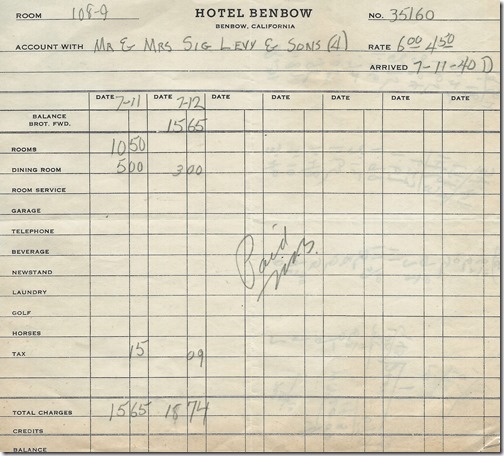 ROOM 108-9 HOTEL BENBOW NO. 35160
BENBOW, CALIFORNIA
ACCOUNT WITH MR & MRS SIG LEVY & SONS (4) RATE 6 00 4 50
ARRIVED 7-11-40 D
DATE 7-11 DATE 7-12 DATE DATE DATE DATE DATE
BALANCE
BROT. FWD. 15 65
ROOMS 10 50
DINING ROOM 5 00 3 00
ROOM SERVICE
GARAGE
TELEPHONE
BEVERAGE Paid
NEWSTAND
LAUNDRY
GOLF
HORSES
TAX 15 09
TOTAL CHARGES 15 65 18 74
CREDITS
BALANCE